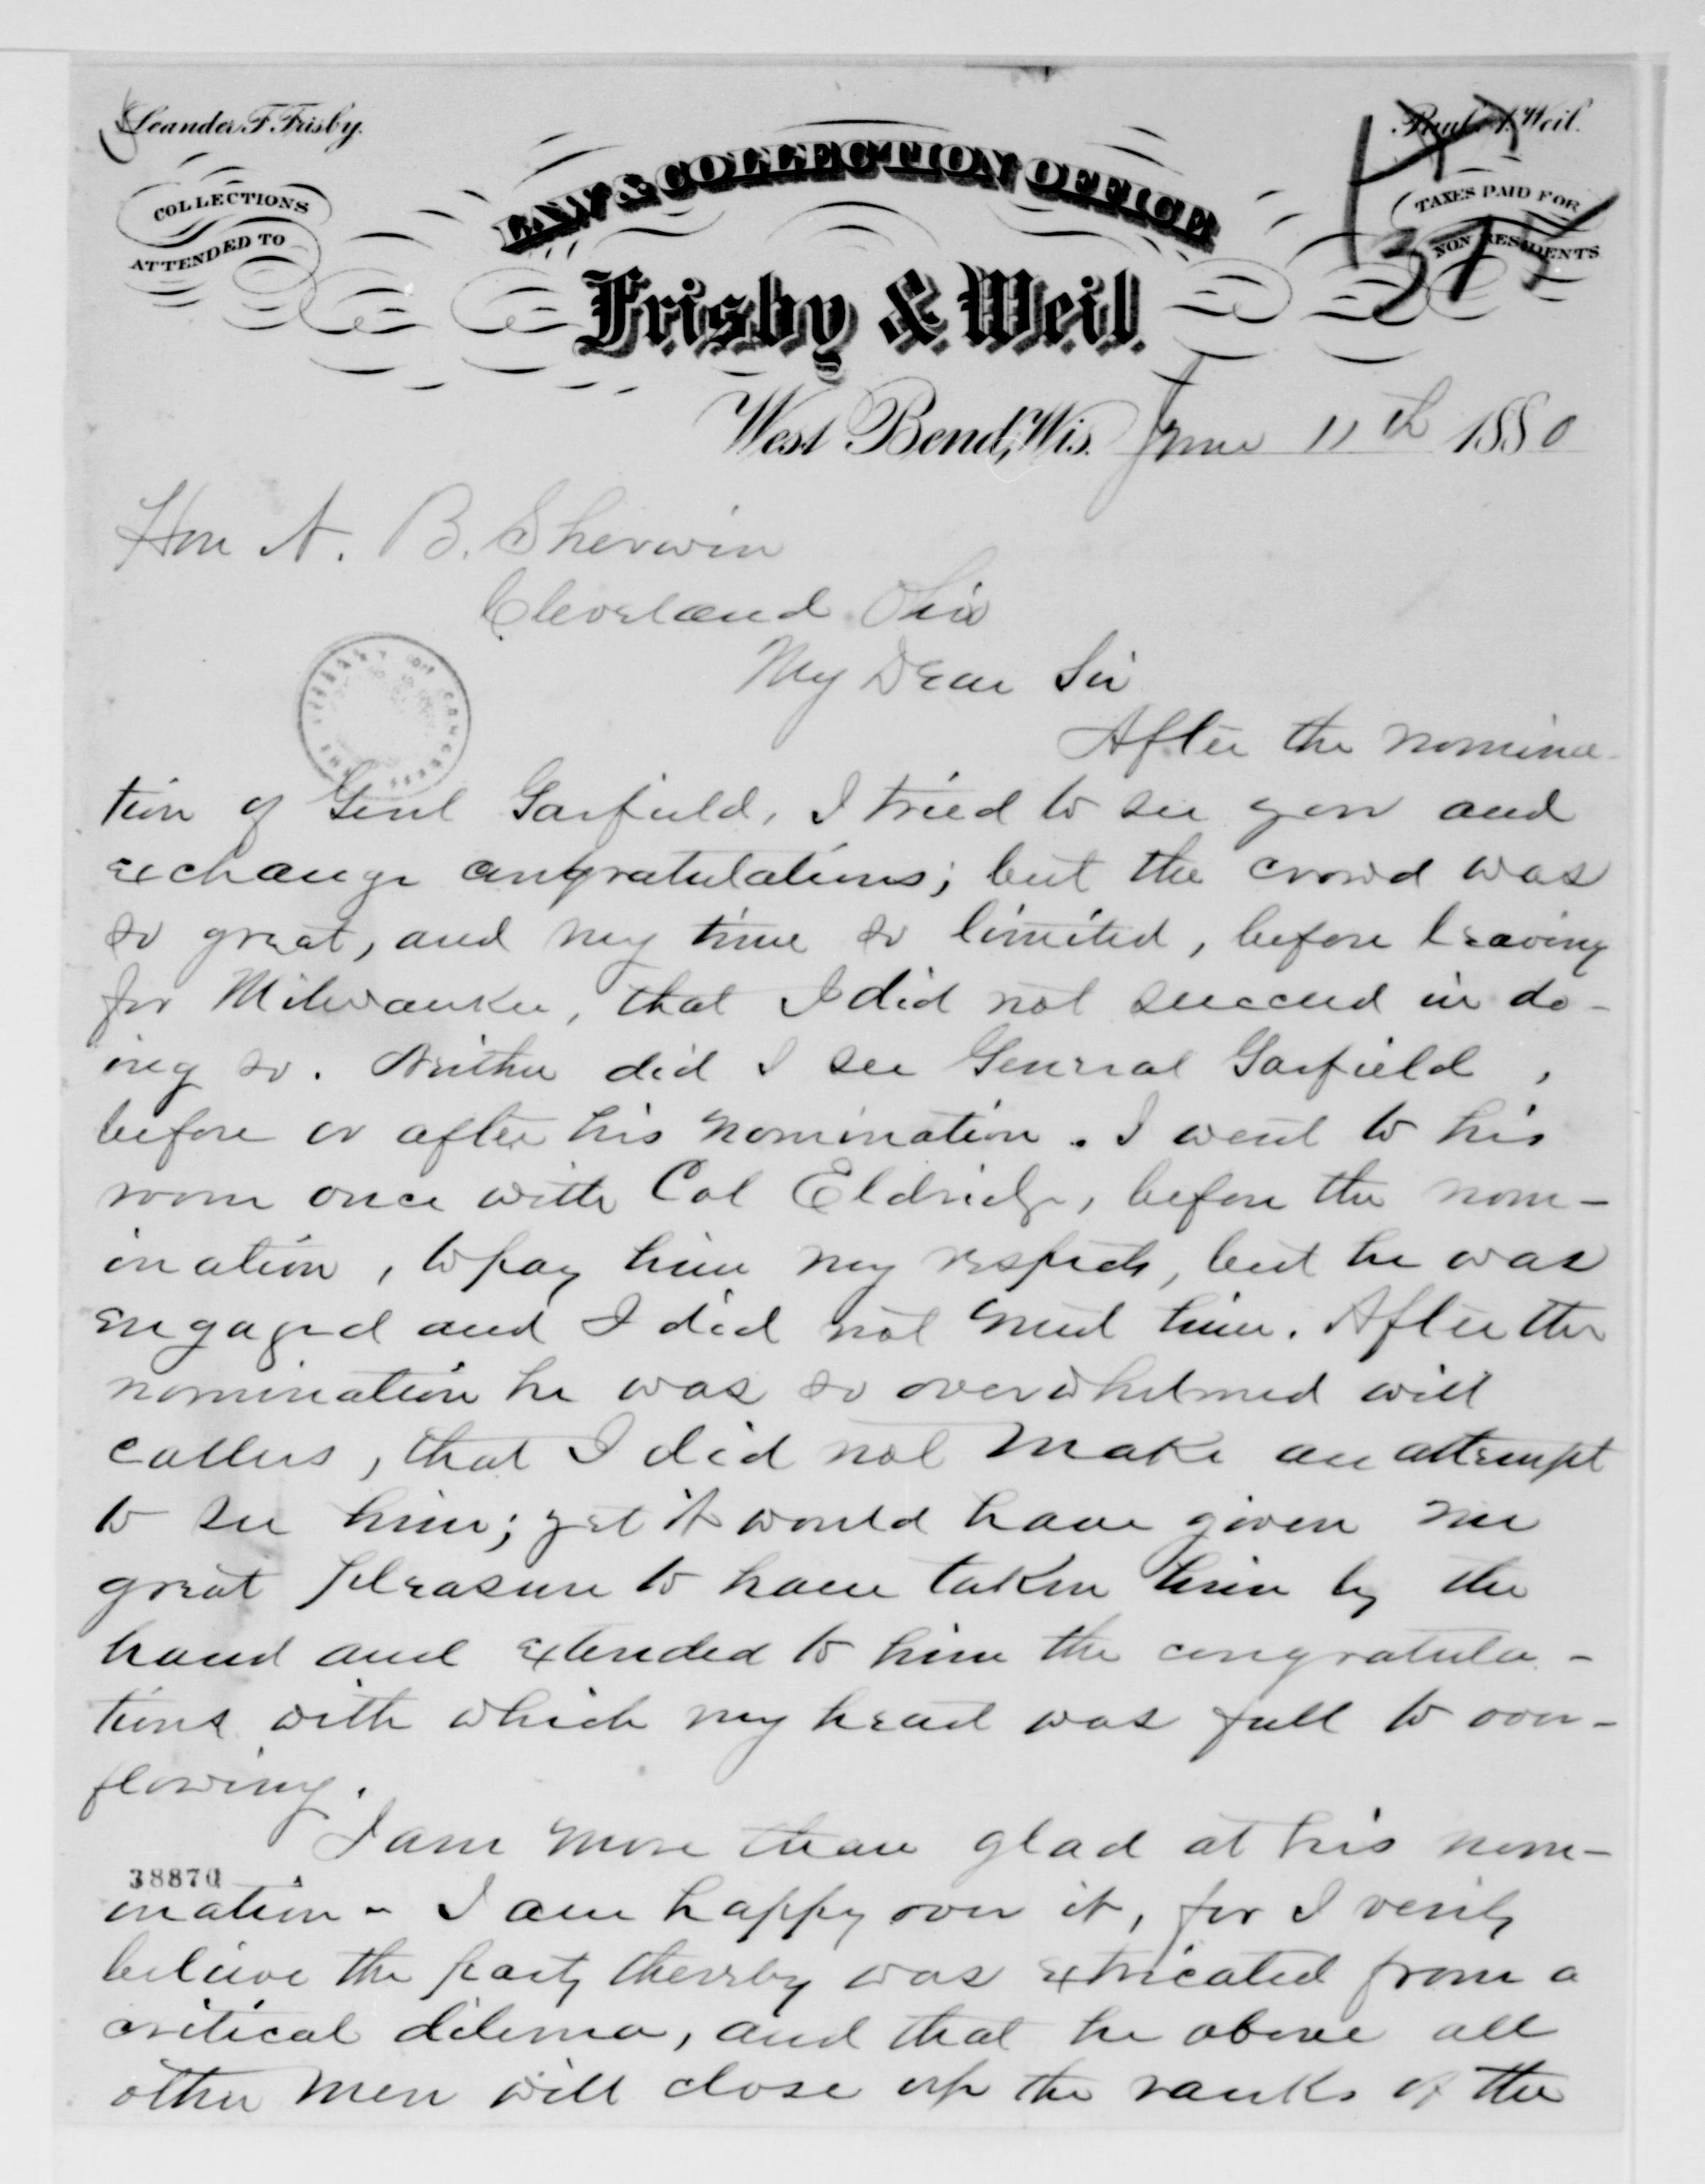 Leander F. Frisby.
Weil.
COLLECTIONS
ATTENDED TO
LAW & COLLECTION OFFICE
TAXES PAID FOR
NON RESIDENTS
375
Frisby & Weil.
West Bend, Wis. June 11th 1880
Hon A. B. Sherwin
Cleveland Ohio
My Dear Sir
After the nomina-
tion of Genl Garfield, I tried to see you and
exchange congratulations; but the crowd was
so great, and my time so limited, before leaving
for Milwaukee, that I did not succeed in do-
ing so. Neither did I see General Garfield,
before or after his nomination. I went to his
room once with Col Eldridge, before the nom-
ination, to pay him my respects, but he was
engaged and I did not meet him. After the
nomination he was so overwhelmed with
callers, that I did not make an attempt
to see him; yet it would have given me
great pleasure to have taken him by the
hand and extended to him the congratula-
tions with which my heart was full to over-
flowing.
I am more than glad at his nom-
38870
ination - I am happy over it, for I verily
believe the party thereby was extricated from a
critical dilema, and that he above all
other men will close up the ranks of the